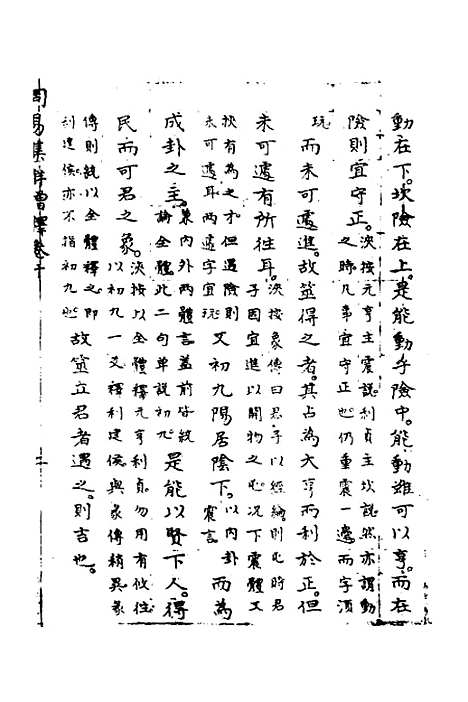 動在下。坎險在上。是能動乎險中。能動雖可以亨。而在
險則宜守正。泱按元亨主震說利貞主坎說然亦謂動
之時凡事宜守正也仍重震一邊而字須
玩 而未可遽進。故筮得之者。其占為大亨而利於正。但
未可遽有所往耳。泱按象傳曰君子以經綸則此時君
子固宜進以開物之也况下震體又
挾有為之才但遇險則
未可遽耳兩遽字宜玩 又初九陽居陰下。以內卦
震言 而為
成卦之主。象內外兩體言蓋前皆統
論全體此二句單說初九 是能以賢下人。得
民而可君之象。泱按以全體釋元亨利貞勿用有攸往
以初九一爻釋利建侯與象傳稍異象
傳則統以全體釋之即
利建侯亦不指初九也 故筮立君者遇之。則吉也。
周易集解卷